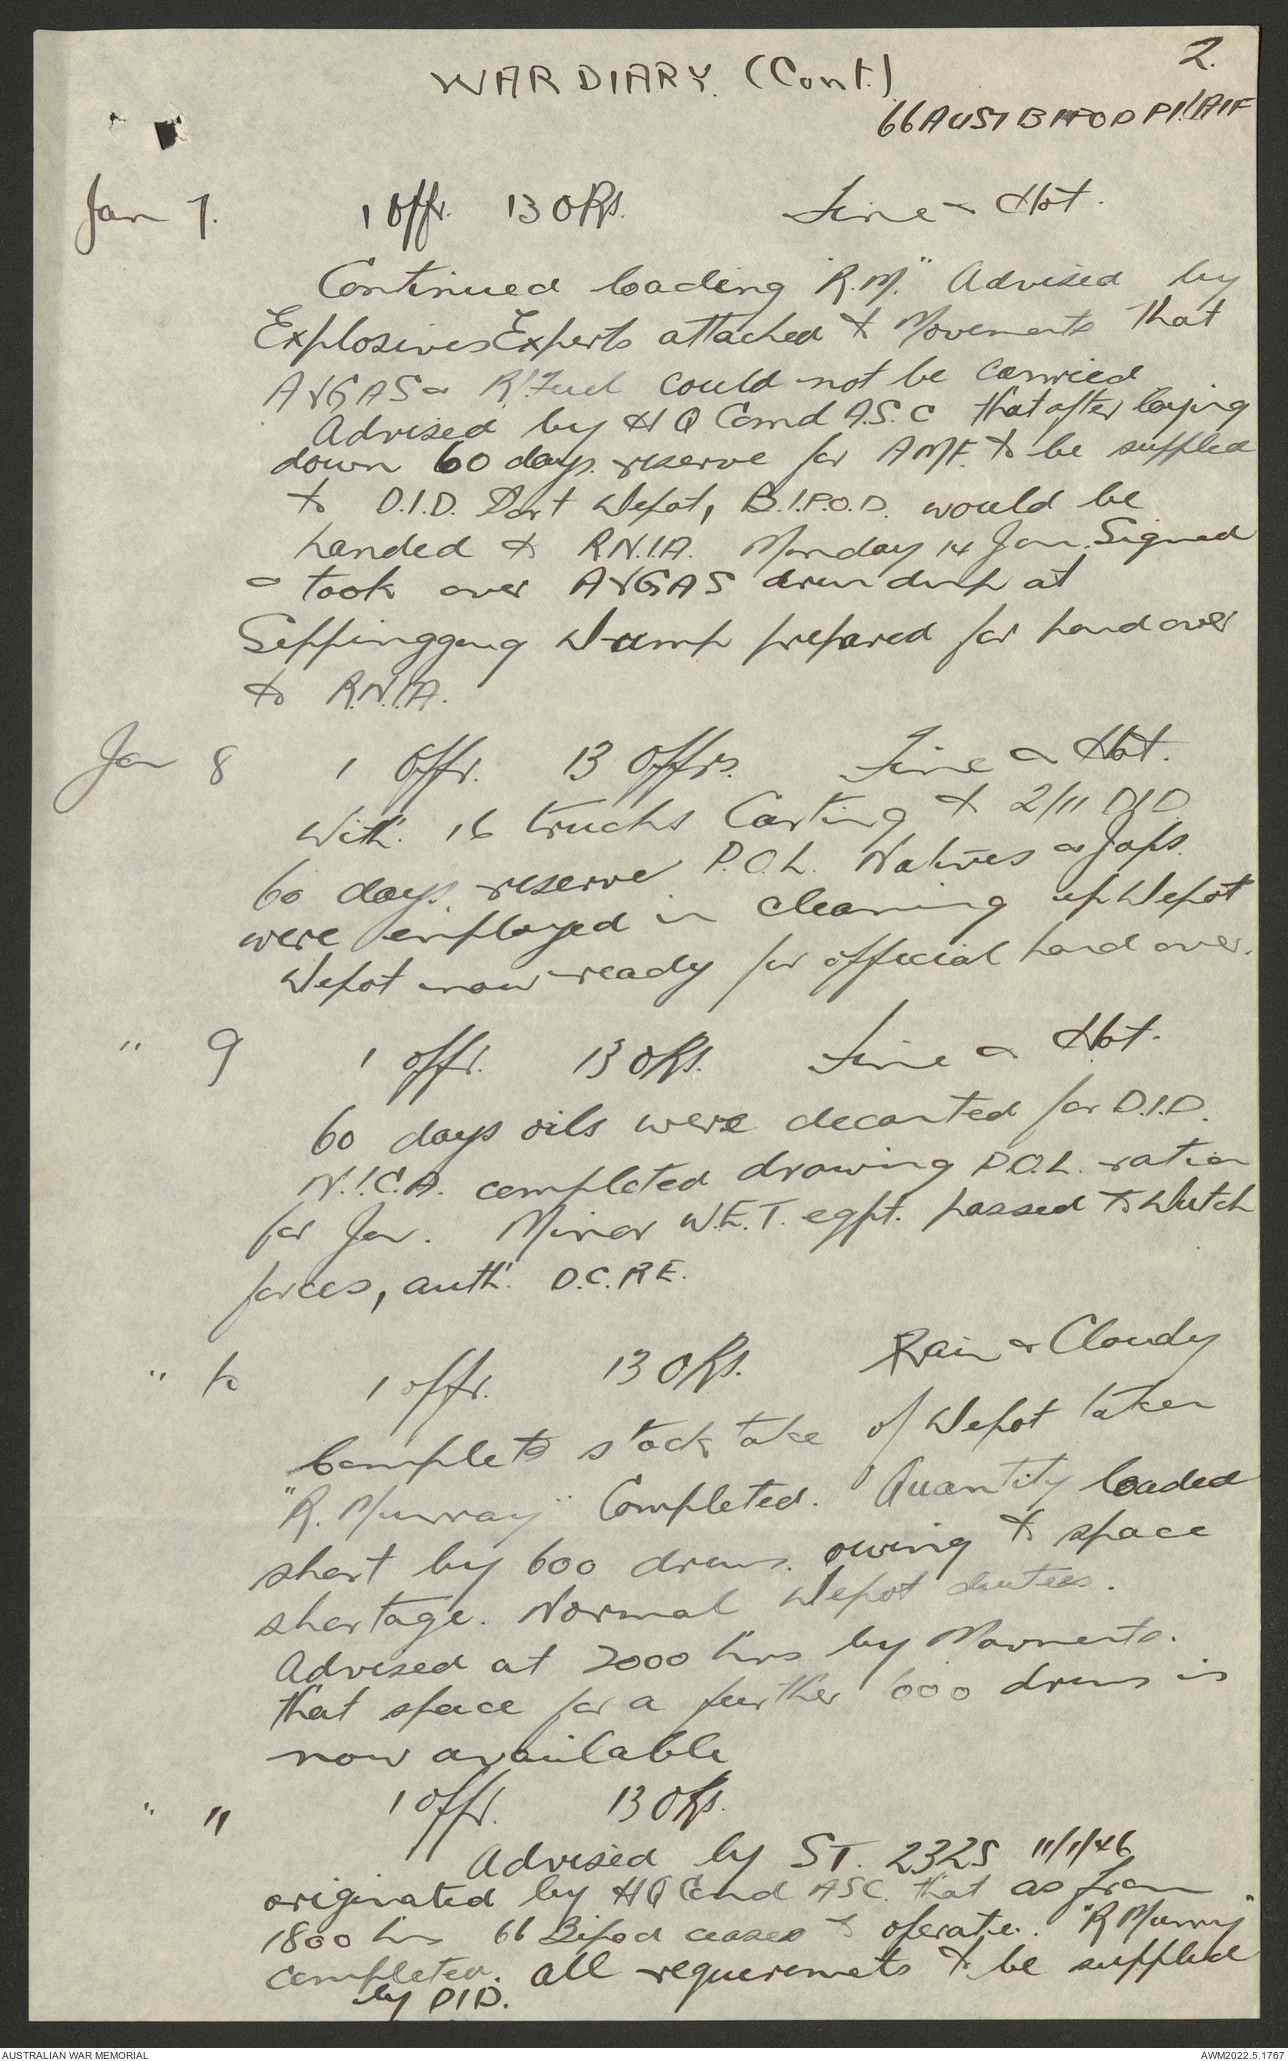 2.
WAR DIARY. (Cont.)
66 AUST BIPOD Pl. AIF
Jan 7. 1 Offr. 13 ORs. Fine & Hot.
Continued loading "R.M." Advised by
Explosives Experts attached to Movements that
AVGAS & R. Fuel could not be carried
Advised by HQ Comd A.S.C that after laying
down 60 days. reserve for AMF. to be supplied
to D.I.D. Port Depot, B.I.P.O.D. would be
handed to R.N.I.A. Monday 14 Jan. Signed
& took over AVGAS drum dump at
Seppinggang Dump prepared for hand over
to R.N.I.A.
Jan 8 1 Offr. 13 Offrs. Fine & Hot.
With 16 trucks Carting to 2/11 DID
60 days reserve P.O.L. Natives & Japs.
were employed in cleaning up Depot
Depot now ready for official hand over.
" 9 1 offr. 13 ORs. Fine & Hot.
60 days oils were decanted for D.I.D.
N.I.C.A. completed drawing P.O.L. ration
for Jan. Minor W.E.T. eqpt. passed to Dutch
forces, auth. D.C.R.E.
" 10 1 offr. 13 ORs. Rain & Cloudy
Complete stock take of Depot taken
"R. Murray" Completed. Quantity loaded
short by 600 drums. owing to space
shortage. Normal Depot duties.
Advised at 2000 hrs by Movments.
that space for a further 600 drums is
now available
" 11 1 offr. 13 ORs.
Advised by ST. 2325 11/1/46
originated by HQ Comd ASC. that as from
1800 hrs 66 Bipod ceases to operate. "R Murray"
completed. all requiremets to be supplied
by DID.
AUSTRALIAN WAR MEMORIAL
AWM2022.5.1767